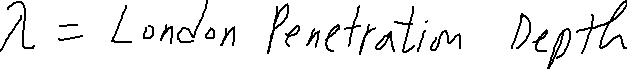 λ = London Penetration Depth